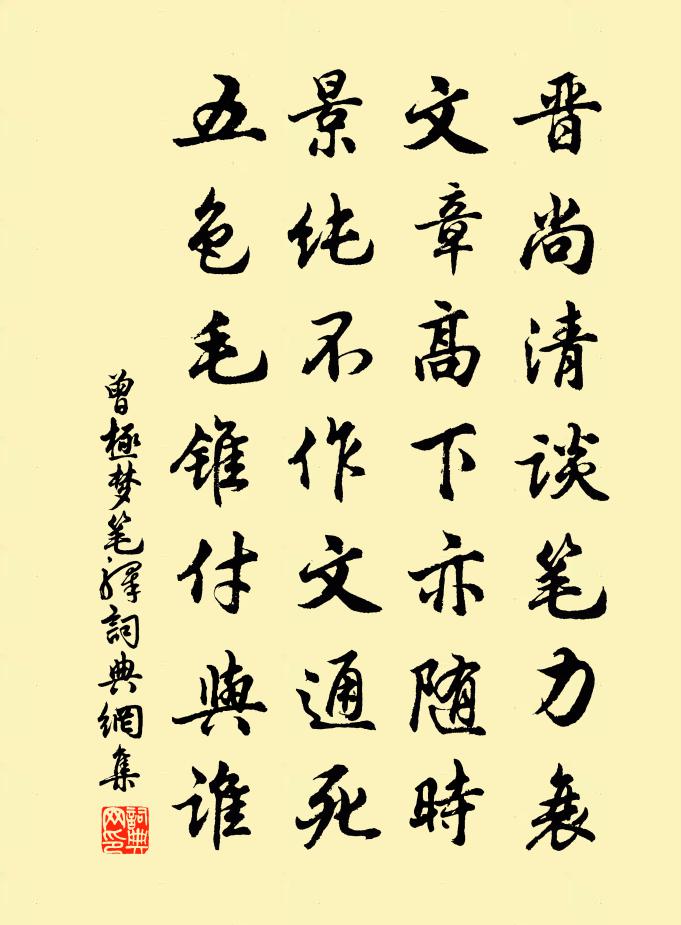 晋尚清谈笔力衰
文章高下亦随時
景纯不作文通死
五色毛锥付與谁
曾極梦笔驛詞典網集
詞典网印